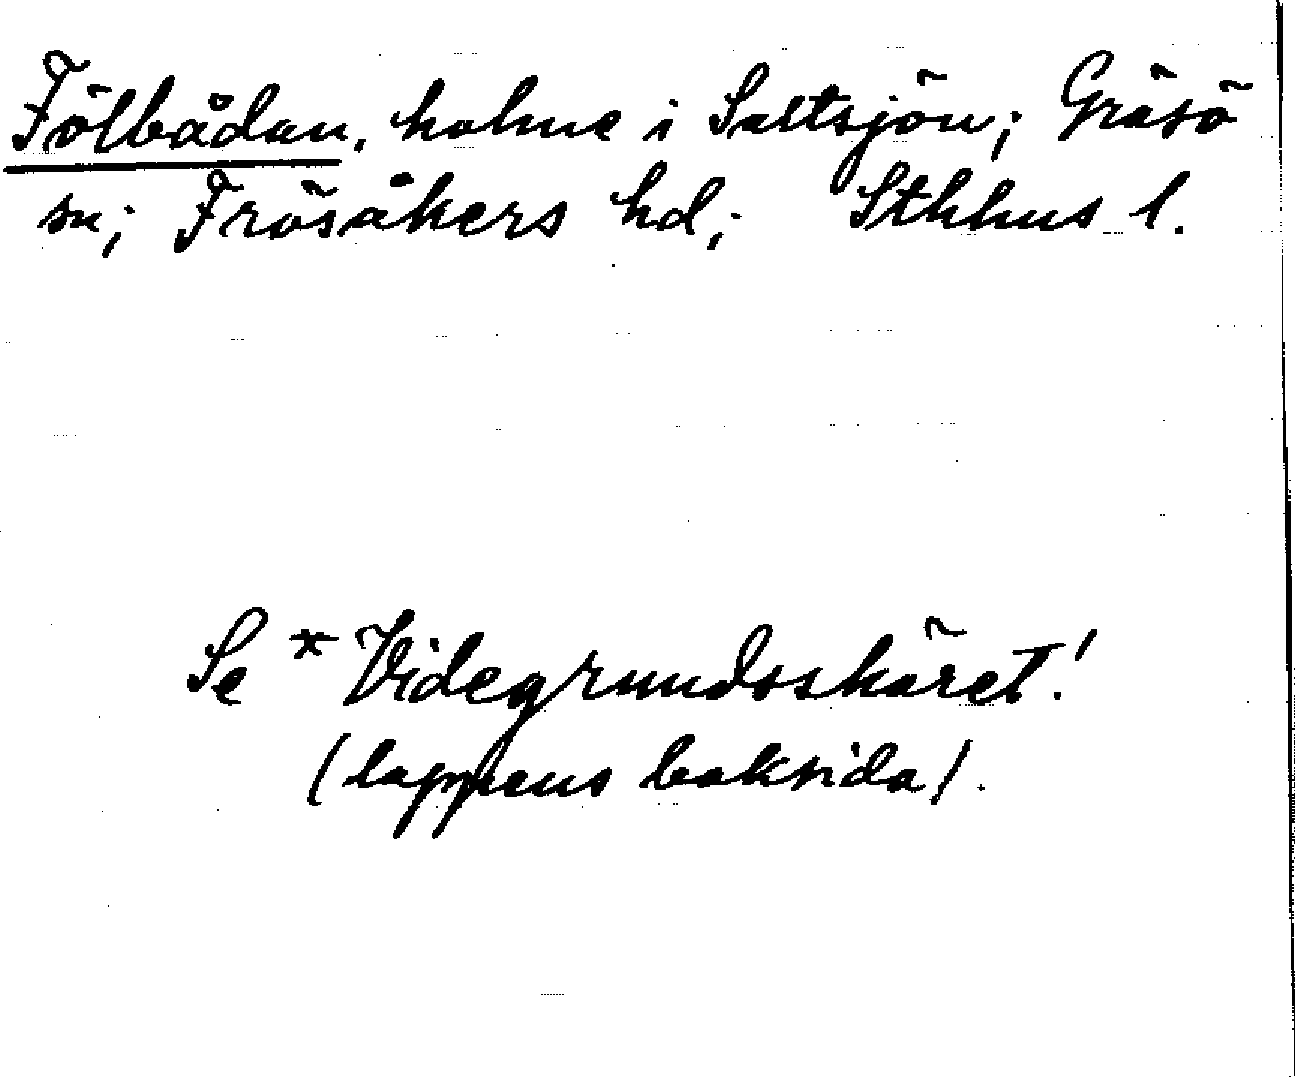 Fölbådan, holme i Saltsjön; Gräsö
sn; Frösåkers hd; Sthlms l.
Se *Videgrundsskäret!
(lappens baksida).